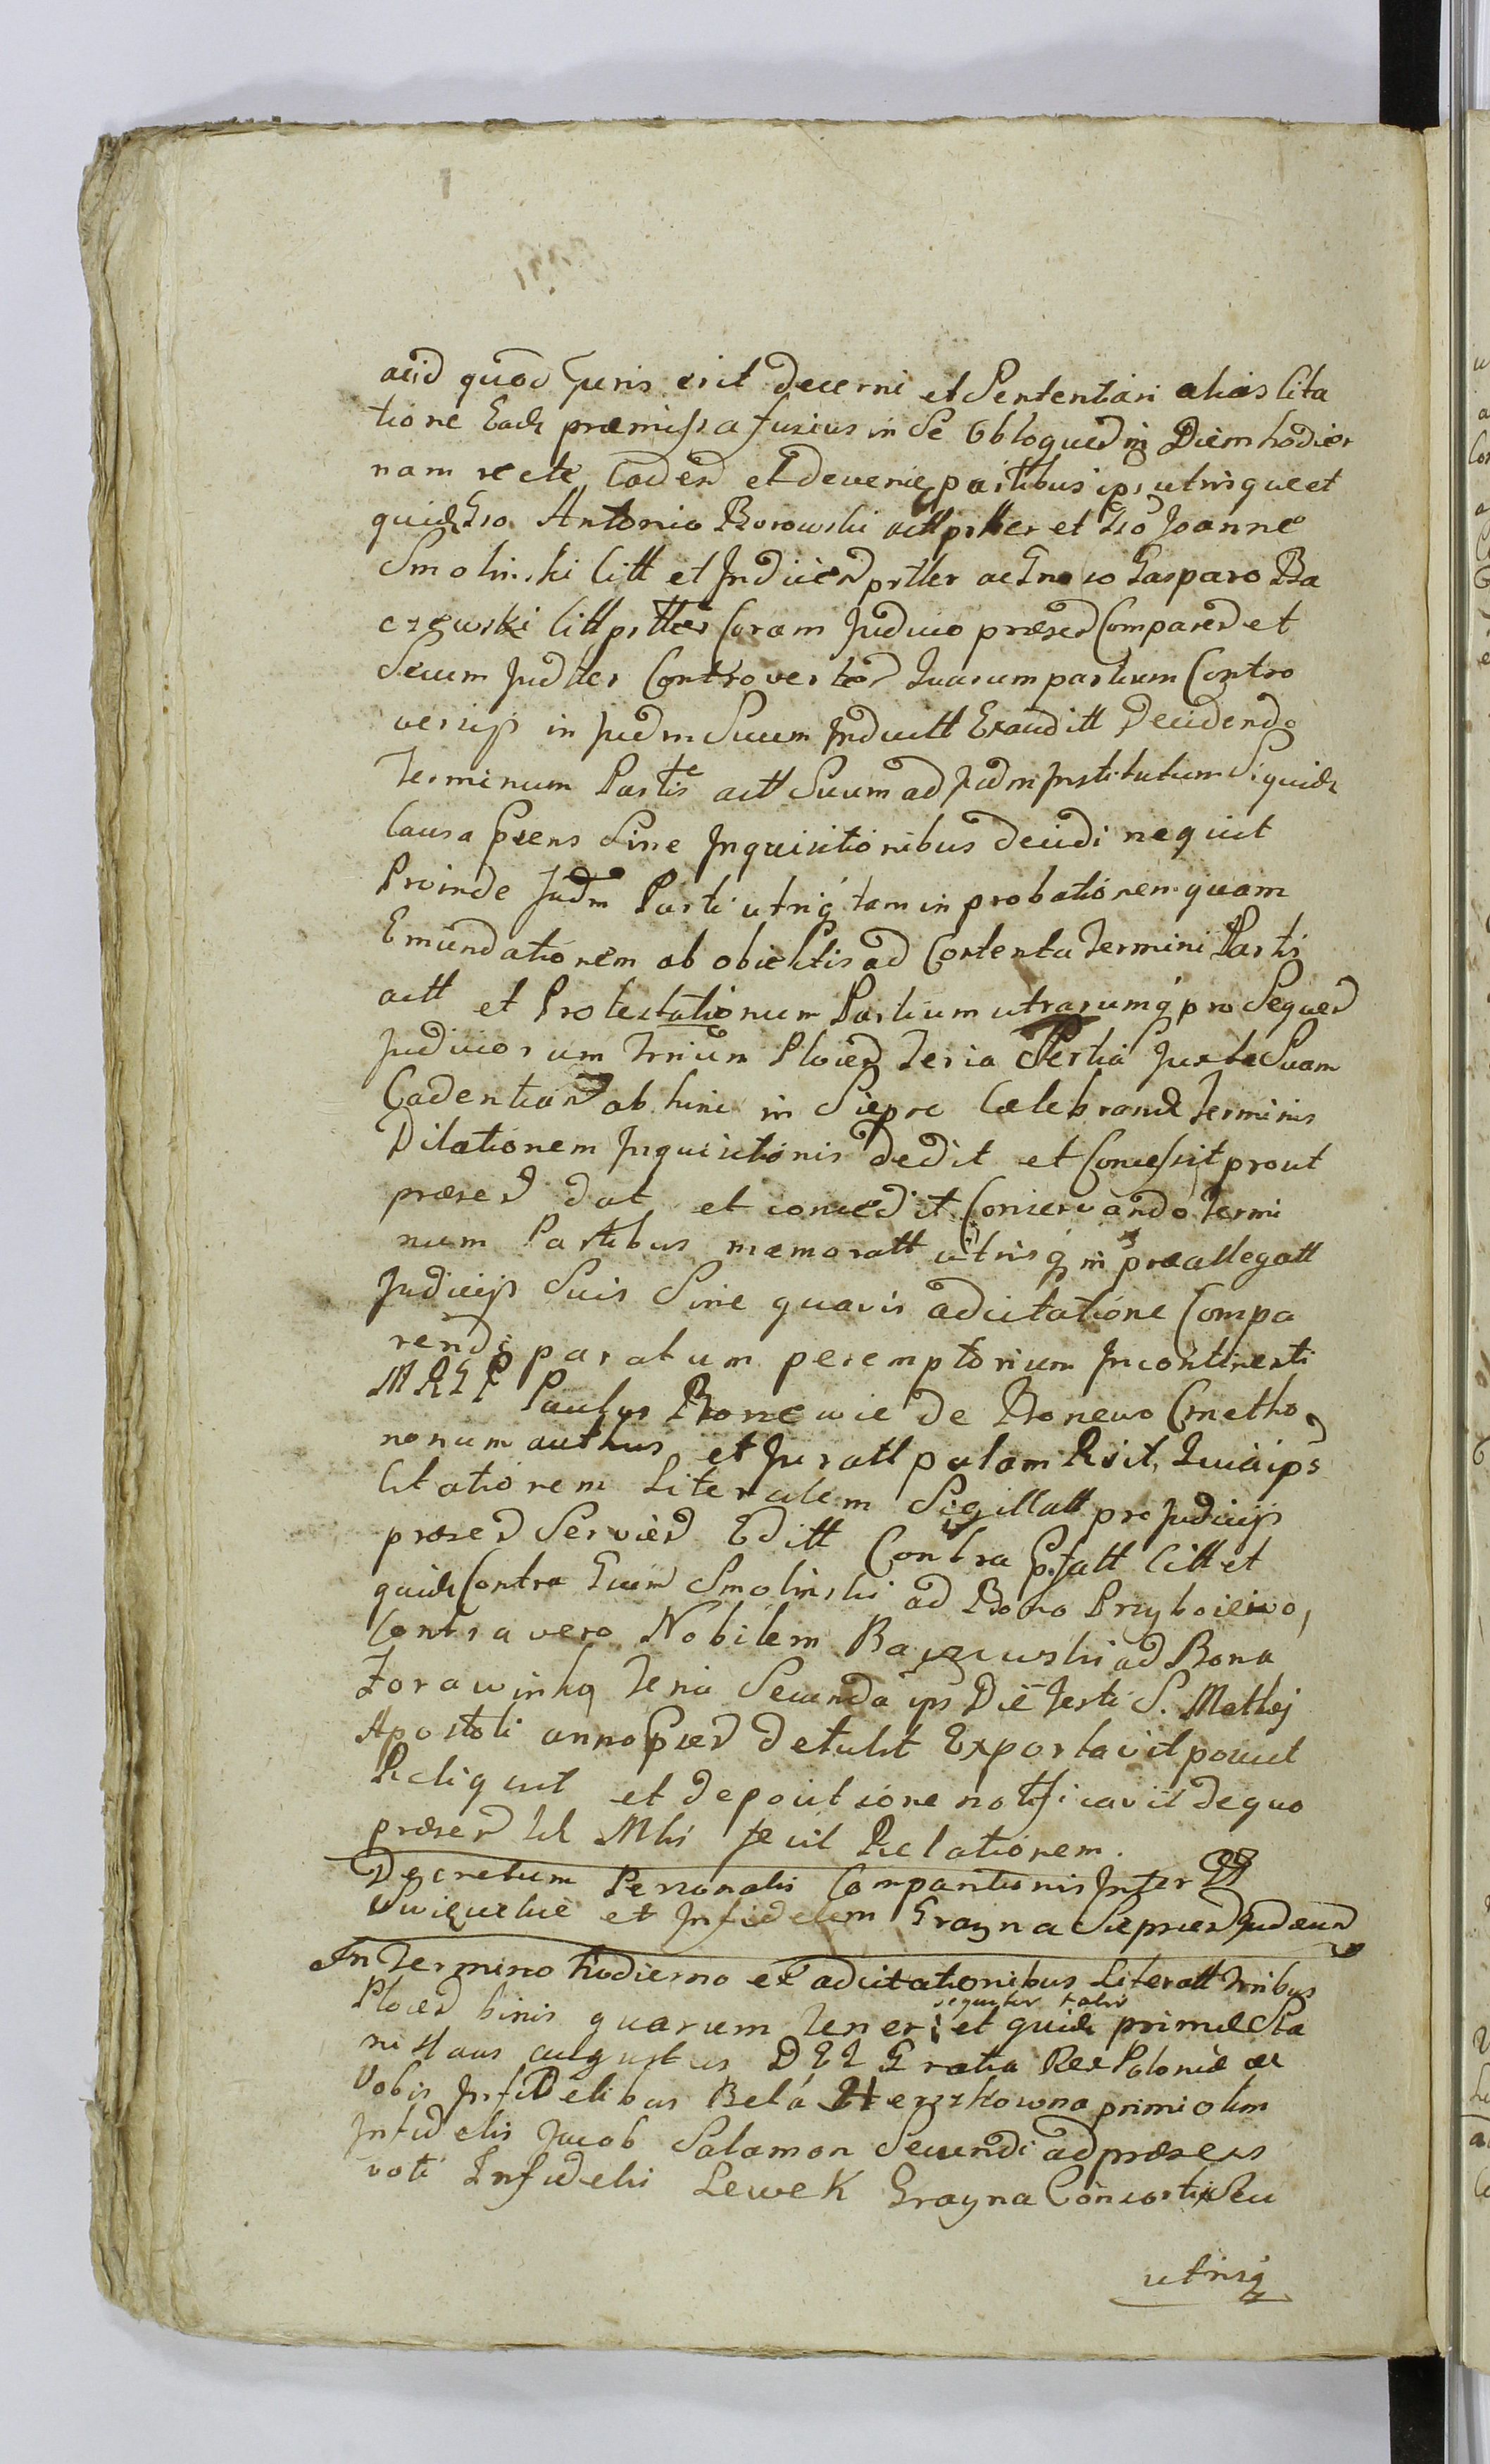 acid quod Juris erit decerni et Sententiari alias Cita
tione Eadz præmissa fusius in Se Obloquen in Diem hodier
nam recte Caden et devenien partibus ipsis utrisque et
quidz Gso Antonio Borowski actt prtter et Gso Joanne
Smolinski Citt et Indicien prtter ac Gnoso Gasparo Ba
czewski Citt prtter Coram Judicio præsen Comparen et
Secum Judtter Controverten Quarum partium Contro
versiis in Judm Suum Inductt Exauditt Decidendo
Terminum Partis actt Suum ad Judm Institutum Siquidz
Causa Præns Sine Inquisitionibus decidi nequit
Proinde Judm Parti utriq tam in probationem quam
Emundationem ab obiectis ad Contenta Termini Partis
actt et Protestationum Partium utrarumq pro Sequen
Judiciorum Trrium Plocen Feria Tertia Juxta Suam
Cadentiam ab hinc in Sieprc Celebrand Terminis
Dilationem Inquisitionis dedit et Concessit prout
præsen dat et concedit Conservando Termi
num Partibus memoratt utrisq in præallegatt
Judiciis Suis Sine quavis adcitatione Compa
rendi paratum peremptorium Incontinenti
MRGF Paulus Bonewic de Bonewo Cmetho
nonum authus et Juratt palam Rsit, Quia ips
Citationem Literalem Sigillatt pro Judiciis
præsen Servien Editt Contra Præfatt Citt et
quidz Contra Gsum Smolinski ad Bona Przyboiewo,
Contra vero Nobilem Baczewski ad Bona
Zorawinka Feria Secunda ips Die Festi S. Mathej
Apostoli anno Præsen detulit Exportavit posuit
Reliquit et depositione notificavit de quo
præsen tel Mtis fecit Relationem.
Decretum Personalis Comparitionis Inter GG
Swiecickie et Infidelem Grayna Sieprcen Judæum
In Termino hodierno ex adcitationibus Literatt Trribus
Plocen binis quarum Tenor sequitur talis et quidz primæ Sta
nislaus augustus DEI Gratia Rex Poloniæ etc
Vobis Infidelibus Bela Herszkowna primi olim
Infidelis Jacob Salamon Secundi ad præsens
voti Infidelis Lewek Grayna Consorti Seu
utrisq